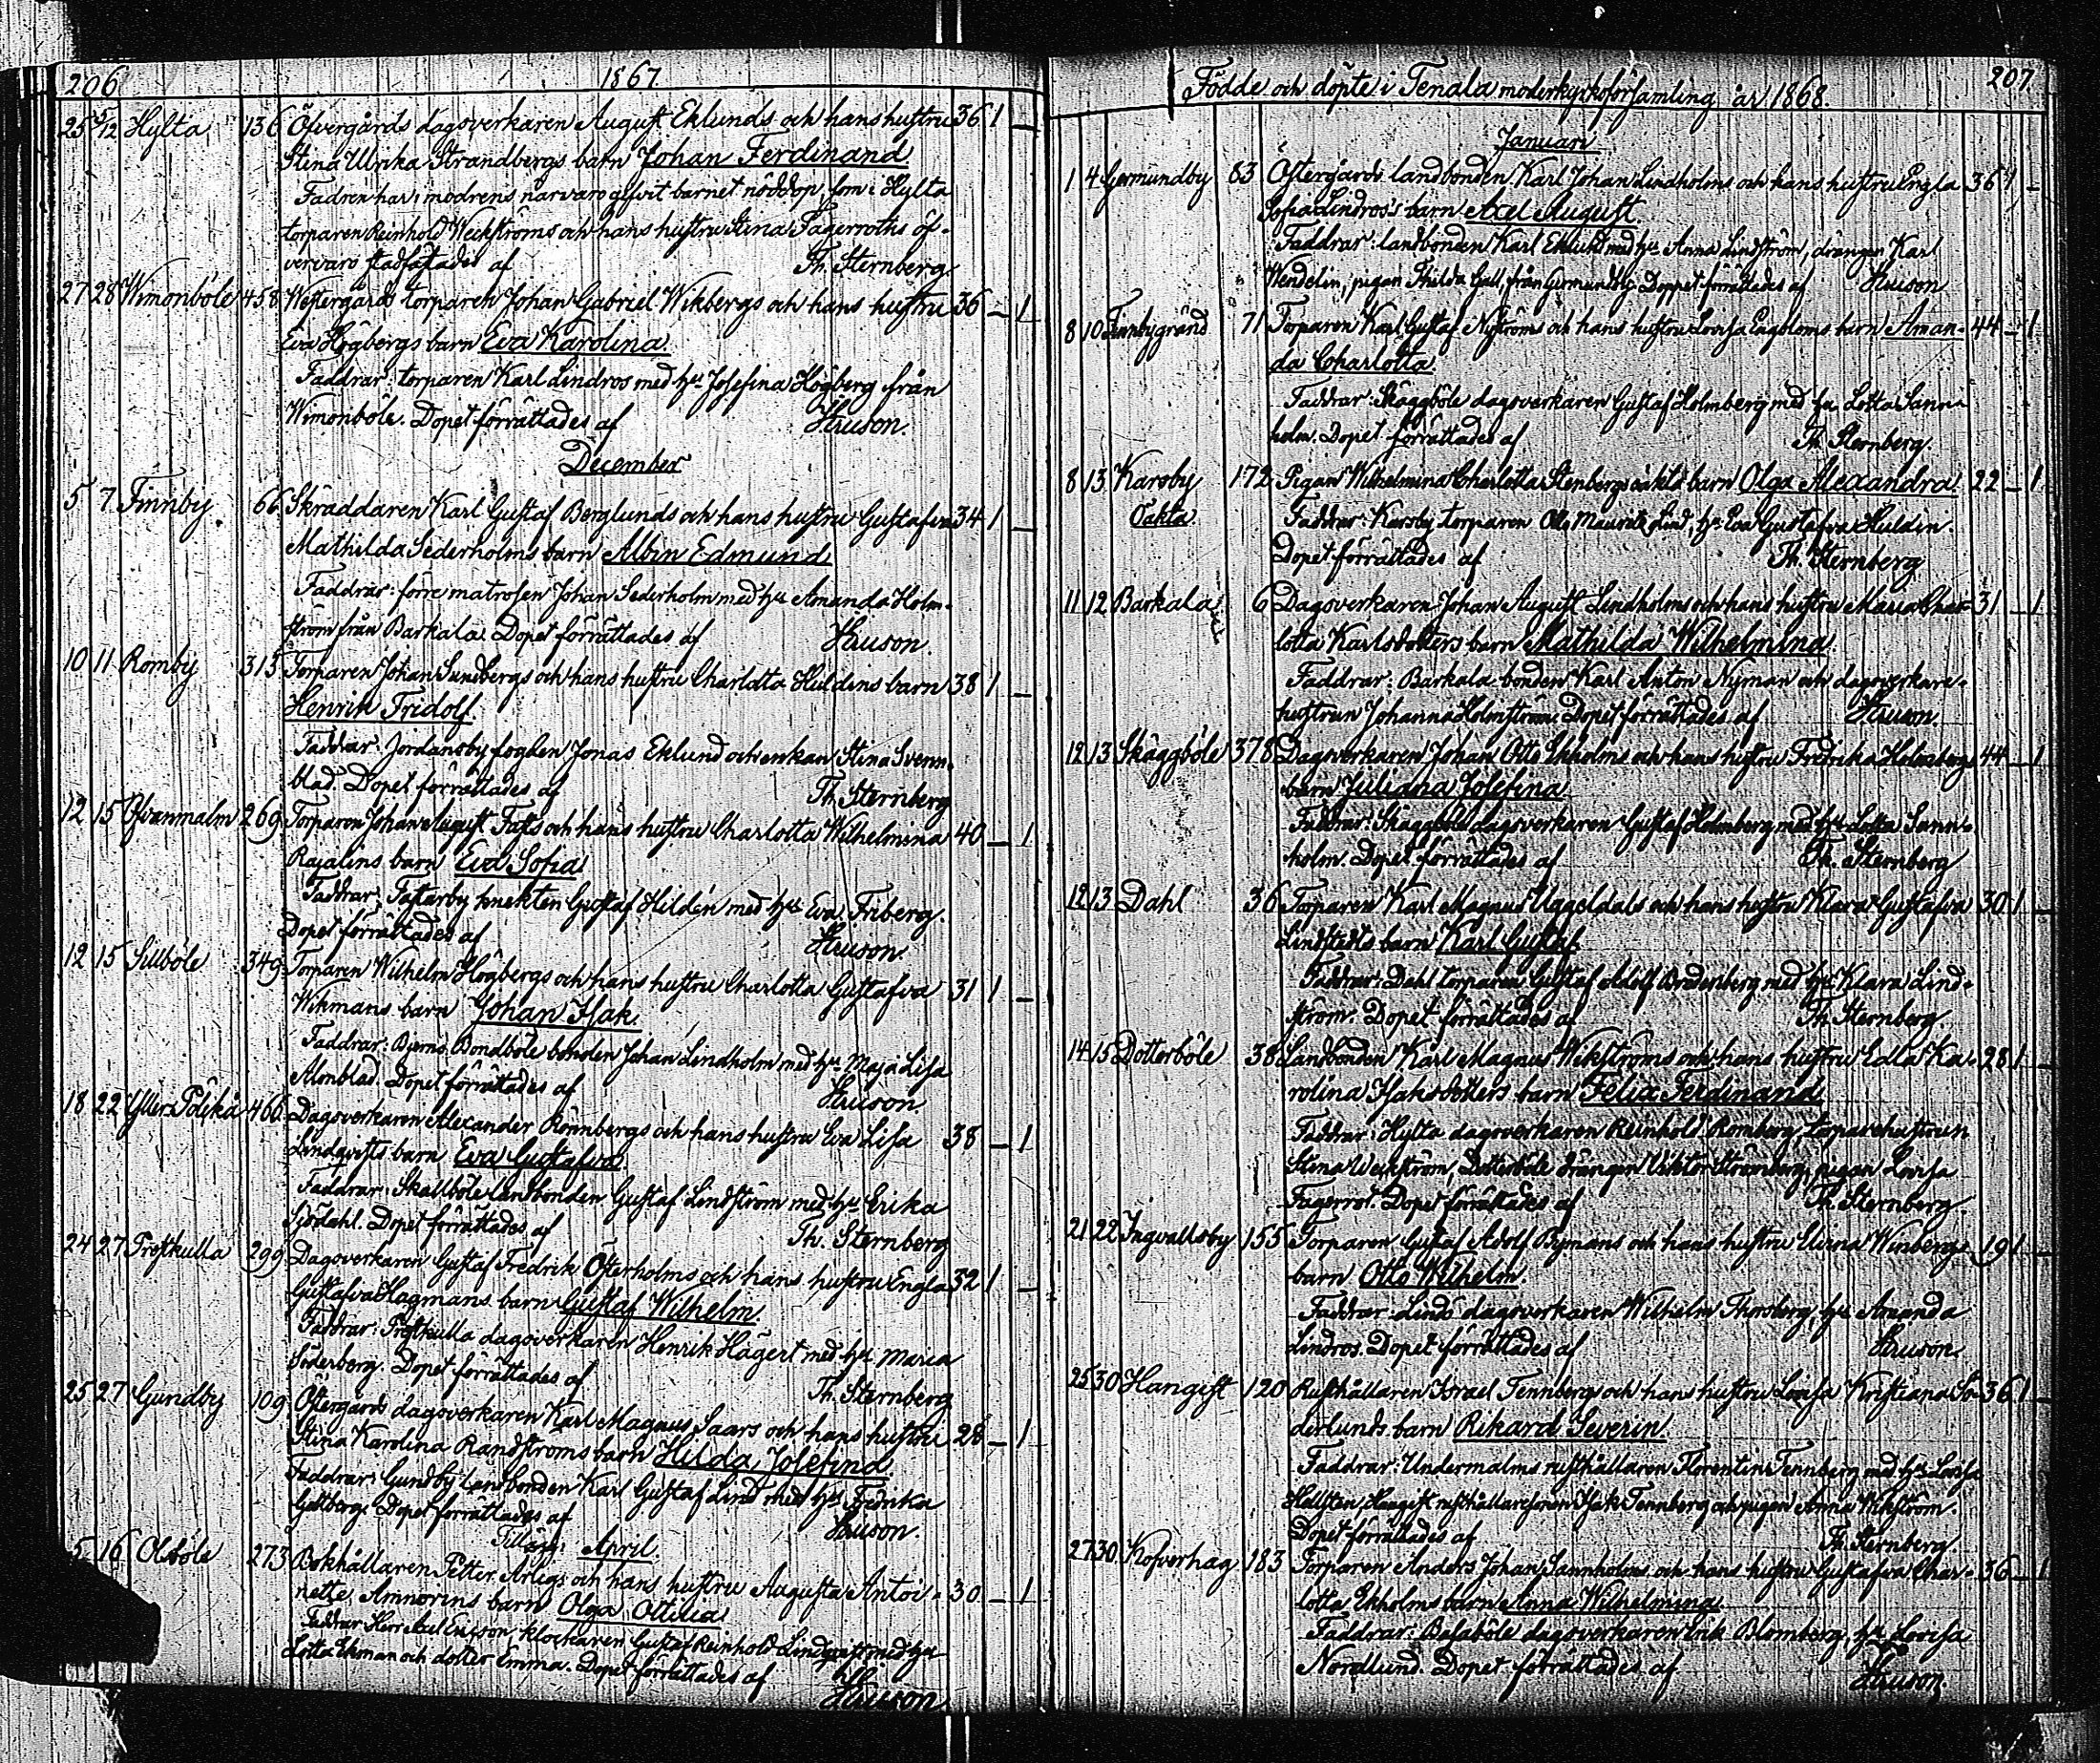 206 1867.
25 5/12 Hylta 136 Öfvergårds dagsverkaren August Eklunds och hans hustru 36 1 —
Stina Ulrika Strandbergs barn Johan Ferdinand
Fadren har i modrens närvaro gifvit barnet nöddop, som i Hylta
torparen Reinhold Weckströms och hans hustru Stina Fagerroths öf-
vervaro stadfästades af Th. Sternberg
27 28 Wimonböle 458 Westergårds torparen Johan Gabriel Wikbergs och hans hustru 36 — 1
Eva Högbergs barn Eva Karolina.
Faddrar: torparen Karl Lindros med h:u Josefina Högberg från
Wimonböle. Dopet förrättades af
December
5 7 Finnby. 66 Skräddaren Karl Gustaf Berglunds och hans hustru Gustafva 34 1 —
Mathilda Sederholms barn Albin Edmund
Faddrar: förre matrosen Johan Sederholm med h:u Amanda Holm-
ström från Barkala. Dopet förrättades af
10 11 Romby 315 Torparen Johan Sundbergs och hans hustru Charlotta Huldins barn 38 1 —
Henrik Fridolf
Faddrar: Jordansby fogden Jonas Eklund och enkan Stina Svenn-
blad. Dopet förrättades af Th. Sternberg
12 15 269 Torparen Johan August Fatts och hans hustru Charlotta Wilhelmina 40 — 1
Rajalins barn Eva Sofia
Faddrar: Fastarby knekten Gustaf Hildén med h:u Eva Friberg.
Dopet förrättades af
12 15 Sillböle 349 Torparen Wilhelm Högbergs och hans hustru Charlotta Gustafva 31 1 —
Wikmans barn Johan Isak.
Faddrar: Bjerno Bondböle bonden Johan Lendholm med h:u Maja Lisa
Almblad. Dopet förrättades af
18 22 466 Dagsverkaren Alexander Rönnbergs och hans hustru Eva Lisa 38 — 1
Lindqvists barn Eva Gustafva.
Faddrar: Skallböle landbonden Gustaf Lindström med h:u Erika
Sjödahl. Dopet förrättades af Th. Sternberg
24 27 Prestkulla 299 Dagsverkaren Gustaf Fredrik Österholms och hans hustru Engla 32 1 —
Gustafva Hagmans barn Gustaf Wilhelm.
Faddrar: Prestkulla dagsverkaren Henrik Hägert med h:u Maria
Söderberg. Dopet förrättades af Th. Sternberg
25 27 Gundby 109 Östergårds dagsverkaren Karl Magnus Saars och hans hustru 28 — 1
Stina Karolina Randströms barn Hilda Josefina
Faddrar: Gundby landbonden Karl Gustaf Lind med h:u Fredrika
Dopet förrättades af
Tillägg: April.
5 16 Olsböle 273 Bokhållaren Petter och hans hustru Augusta Antoi- 30 — 1
nette Amnorins barn Olga Ottilia
Faddrar Herr Axel Ericson klockaren Gustaf Reinhold Lindqvist med h:u
Lotta Ekman och dotter Emma. Dopet förrättades af
Födde och döpte i Tenala moderkyrkoförsamling år 1868. 207
Januari
1 4 Germundby 83 Östergårds landbonden Karl Johan Lindholms och hans hustru Engla 36 1 —
Sofia Lindros's barn Axel August.
Faddrar: landbonden Karl Eklund med h:u Anna Lindström, drängen Karl
Wendelin, pigan Thilda Gall, från Germundby. Doppet förrättades af
8 10 Finnbygränd 71 Torparen Karl Gustaf Nyströms och hans hustru Lovisa barn Aman- 44 — 1
da Charlotta.
Faddrar: Skäggböle dagsverkaren Gustaf Holmberg med h:u Lotta Sann-
holm. Dopet förrättades af Th. Sternberg.
8 13 Karsby 172 Pigan Wilhelmina Charlotta Stenbergs oäkta barn Olga Alexandra. 22 — 1
Oäkta Faddrar: Karsby torparen Otto Mauritz Lind, h:u Eva Gustafva Huldin.
Dopet förrättades af Th. Sternberg
11 12 Barkala 6 Dagsverkaren Johan August Lindholms och hans hustru Maria Char- 31 — 1
lotta Karlsdotters barn Mathilda Wilhelmina.
Faddrar: Barkala bonden Karl Anton Nyman och dagsverkare-
hustrun Johanna Holmström. Dopet förrättades af
12 13 Skäggböle 378 Dagsverkaren Johan Otto Ekholms och hans hustru Fredrika Holmbergs 44 — 1
barn Juliana Josefina
Faddrar: Skäggböle dagsverkaren Gustaf Holmberg med h:u Lotta Sann-
holm. Dopet förrättades af Th. Sternberg
12 13 Dahl 36 Torparen Karl Magnus Uggeldals och hans hustru Klara Gustafva 30 1 —
Lindstedts barn Karl Gustaf.
Faddrar: Dahl torparen Gustaf Adolf Brådenberg med h:u Klara Lind-
ström. Dopet förrättades af Th. Sternberg.
14 15 Dotterböle 38 Landbonden Karl Magnus Wikströms och hans hustru Edla Ka- 28 1 —
rolina Isaksdotters barn Felix Ferdinand.
Faddrar: Hylta dagsverkaren Reinhold Romberg, torparehustrun
Stina Weckström, Dotterböle drängen Viktor Strömberg, pigan Lovisa
Fagerrot. Dopet förrättades af Th. Sternberg.
21 22 Ingvallsby 155 Torparen Gustaf Adolf Bymans och hans hustru Winbergs 19 1 —
barn Otto Wilhelm.
Faddrar: Linds dagsverkaren Wilhelm Thorsberg, h:u Amanda
Lindros. Dopet förrättades af
25 30 Hangist 120 Rusthållaren Israel Tennbergs och hans hustru Lovisa Kristiana Sö- 36 1 —
derlunds barn Rikard Severin.
Faddrar: Undermalms rusthållaren Florentin Tennberg med h:u Lovisa
Hellsten; Hangist rusthållaresonen Isak Tennberg och pigan Anna Wikström.
Dopet förrättades af Th. Sternberg.
27 30 Kofverhag 183 Torparen Anders Johan Sannholms och hans hustru Gustafva Char- 36 — 1
lotta Ekholms barn Anna Wilhelmina.
Faddrar: Basaböle dagsverkaren Erik Blomberg, h:u Lovisa
Nordlund. Dopet förrättades af